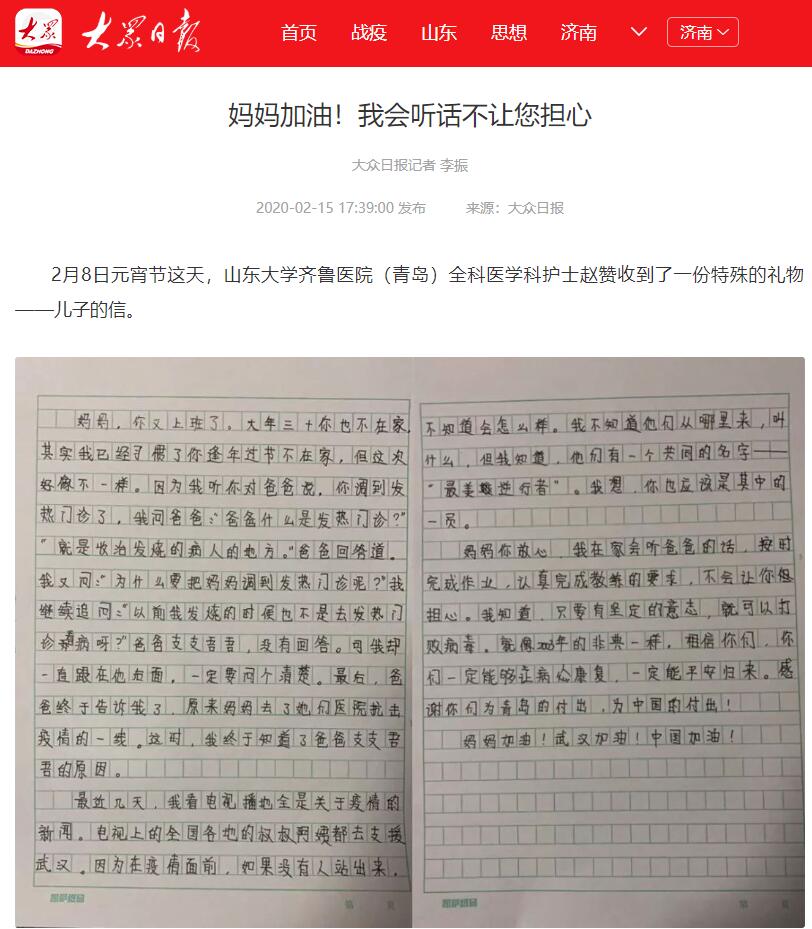 大众 DAZHONG 大众日报 首页 战疫 山东 思想 济南 济南
妈妈加油！我会听话不让您担心
大众日报记者 李振
2020-02-15 17:39:00 发布 来源：大众日报
2月8日元宵节这天，山东大学齐鲁医院（青岛）全科医学科护士赵赞收到了一份特殊的礼物
——儿子的信。
妈妈，你又上班了。大年三十你也不在家，
其实我已经习惯了你逢年过节不在家，但这次
好像不一样。因为我听你对爸爸说，你调到发
热门诊了，我问爸爸：“爸爸什么是发热门诊？”
“就是收治发烧的病人的地方。”爸爸回答道。
我又问：“为什么要把妈妈调到发热门诊呢？”我
继续追问：“以前我发烧的时候也不是去发热门
诊看病呀？”爸爸支支吾吾，没有回答。可我却
一直跟在他后面，一定要问个清楚。最后，爸
爸终于告诉我了，原来妈妈去了她们医院抗击
疫情的一线。这时，我终于知道了爸爸支支吾
吾的原因。
最近几天，我看电视播地全是关于疫情的
新闻。电视上的全国各地的叔叔阿姨都去支援
武汉。因为在疫情面前，如果没有人站出来，
不知道会怎么样。我不知道他们从哪里来，叫
什么，但我知道，他们有一个共同的名字——
“最美逆行者”。我想，你也应该是其中的
一员。
妈妈你放心，我在家会听爸爸的话，按时
完成作业，认真完成教练的要求，不会让你
担心。我知道，只要有坚定的意志，就可以打
败病毒。就像2003年的非典一样，相信你们，你
们一定能够让病人康复，一定能平安归来。感
谢你们为青岛的付出，为中国的付出！
妈妈加油！武汉加油！中国加油！
第 页
第 页